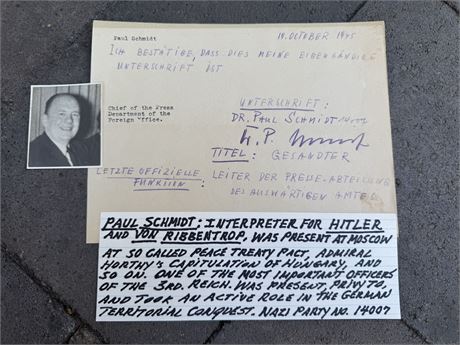 Paul Schmidt
18. OCTOBER 1945
ICH BESTÄTIGE, DASS DIES MEINE EIGENHÄNDIGE
UNTERSCHRIFT IST
Chief of the Press
Department of the
Foreign Office.
UNTERSCHRIFT:
DR. PAUL SCHMIDT
TITEL: GESANDTER
LETZTE OFFIZIELLE
FUNKTION:
LEITER DER PRESSE-ABTEILUNG
DES AUSWÄRTIGEN AMTES
PAUL SCHMIDT: INTERPRETER FOR HITLER
AND VON RIBBENTROP, WAS PRESENT AT MOSCOW
AT SO CALLED PEACE TREATY PACT, ADMIRAL
HORTHY'S CAPITULATION OF HUNGARY, AND
SO ON. ONE OF THE MOST IMPORTANT OFFICERS
OF THE 3RD. REICH. WAS PRESENT, PRIVY TO,
AND TOOK AN ACTIVE ROLE IN THE GERMAN
TERRITORIAL CONQUEST. NAZI PARTY NO. 14007